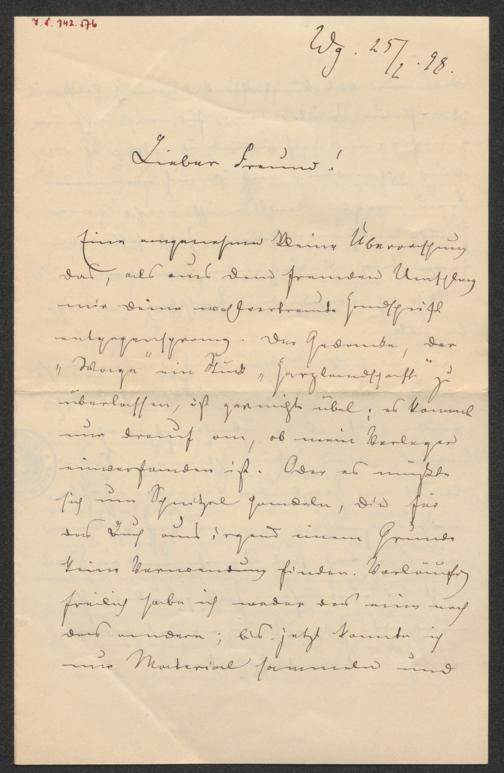 Wg. 25/2. 98.
Lieber Freund!
Eine angenehme kleine Überraschung
das, als aus dem fremden Umschlag
mir deine wohlvertraute Handschrift
entgegensprang. Der Gedanke, der
„Woge“ ein Stück „Harzlandschaft“ zu
überlassen, ist gar nicht übel; es kommt
nur drauf an, ob mein Verleger
einverstanden ist. Oder es müßte
sich um Schnitzel handeln, die für
das Buch aus irgend einem Grunde
keine Verwendung finden. Vorläufig
freilich habe ich weder das eine noch
das andere; bis jetzt konnte ich
nur Material sammeln und